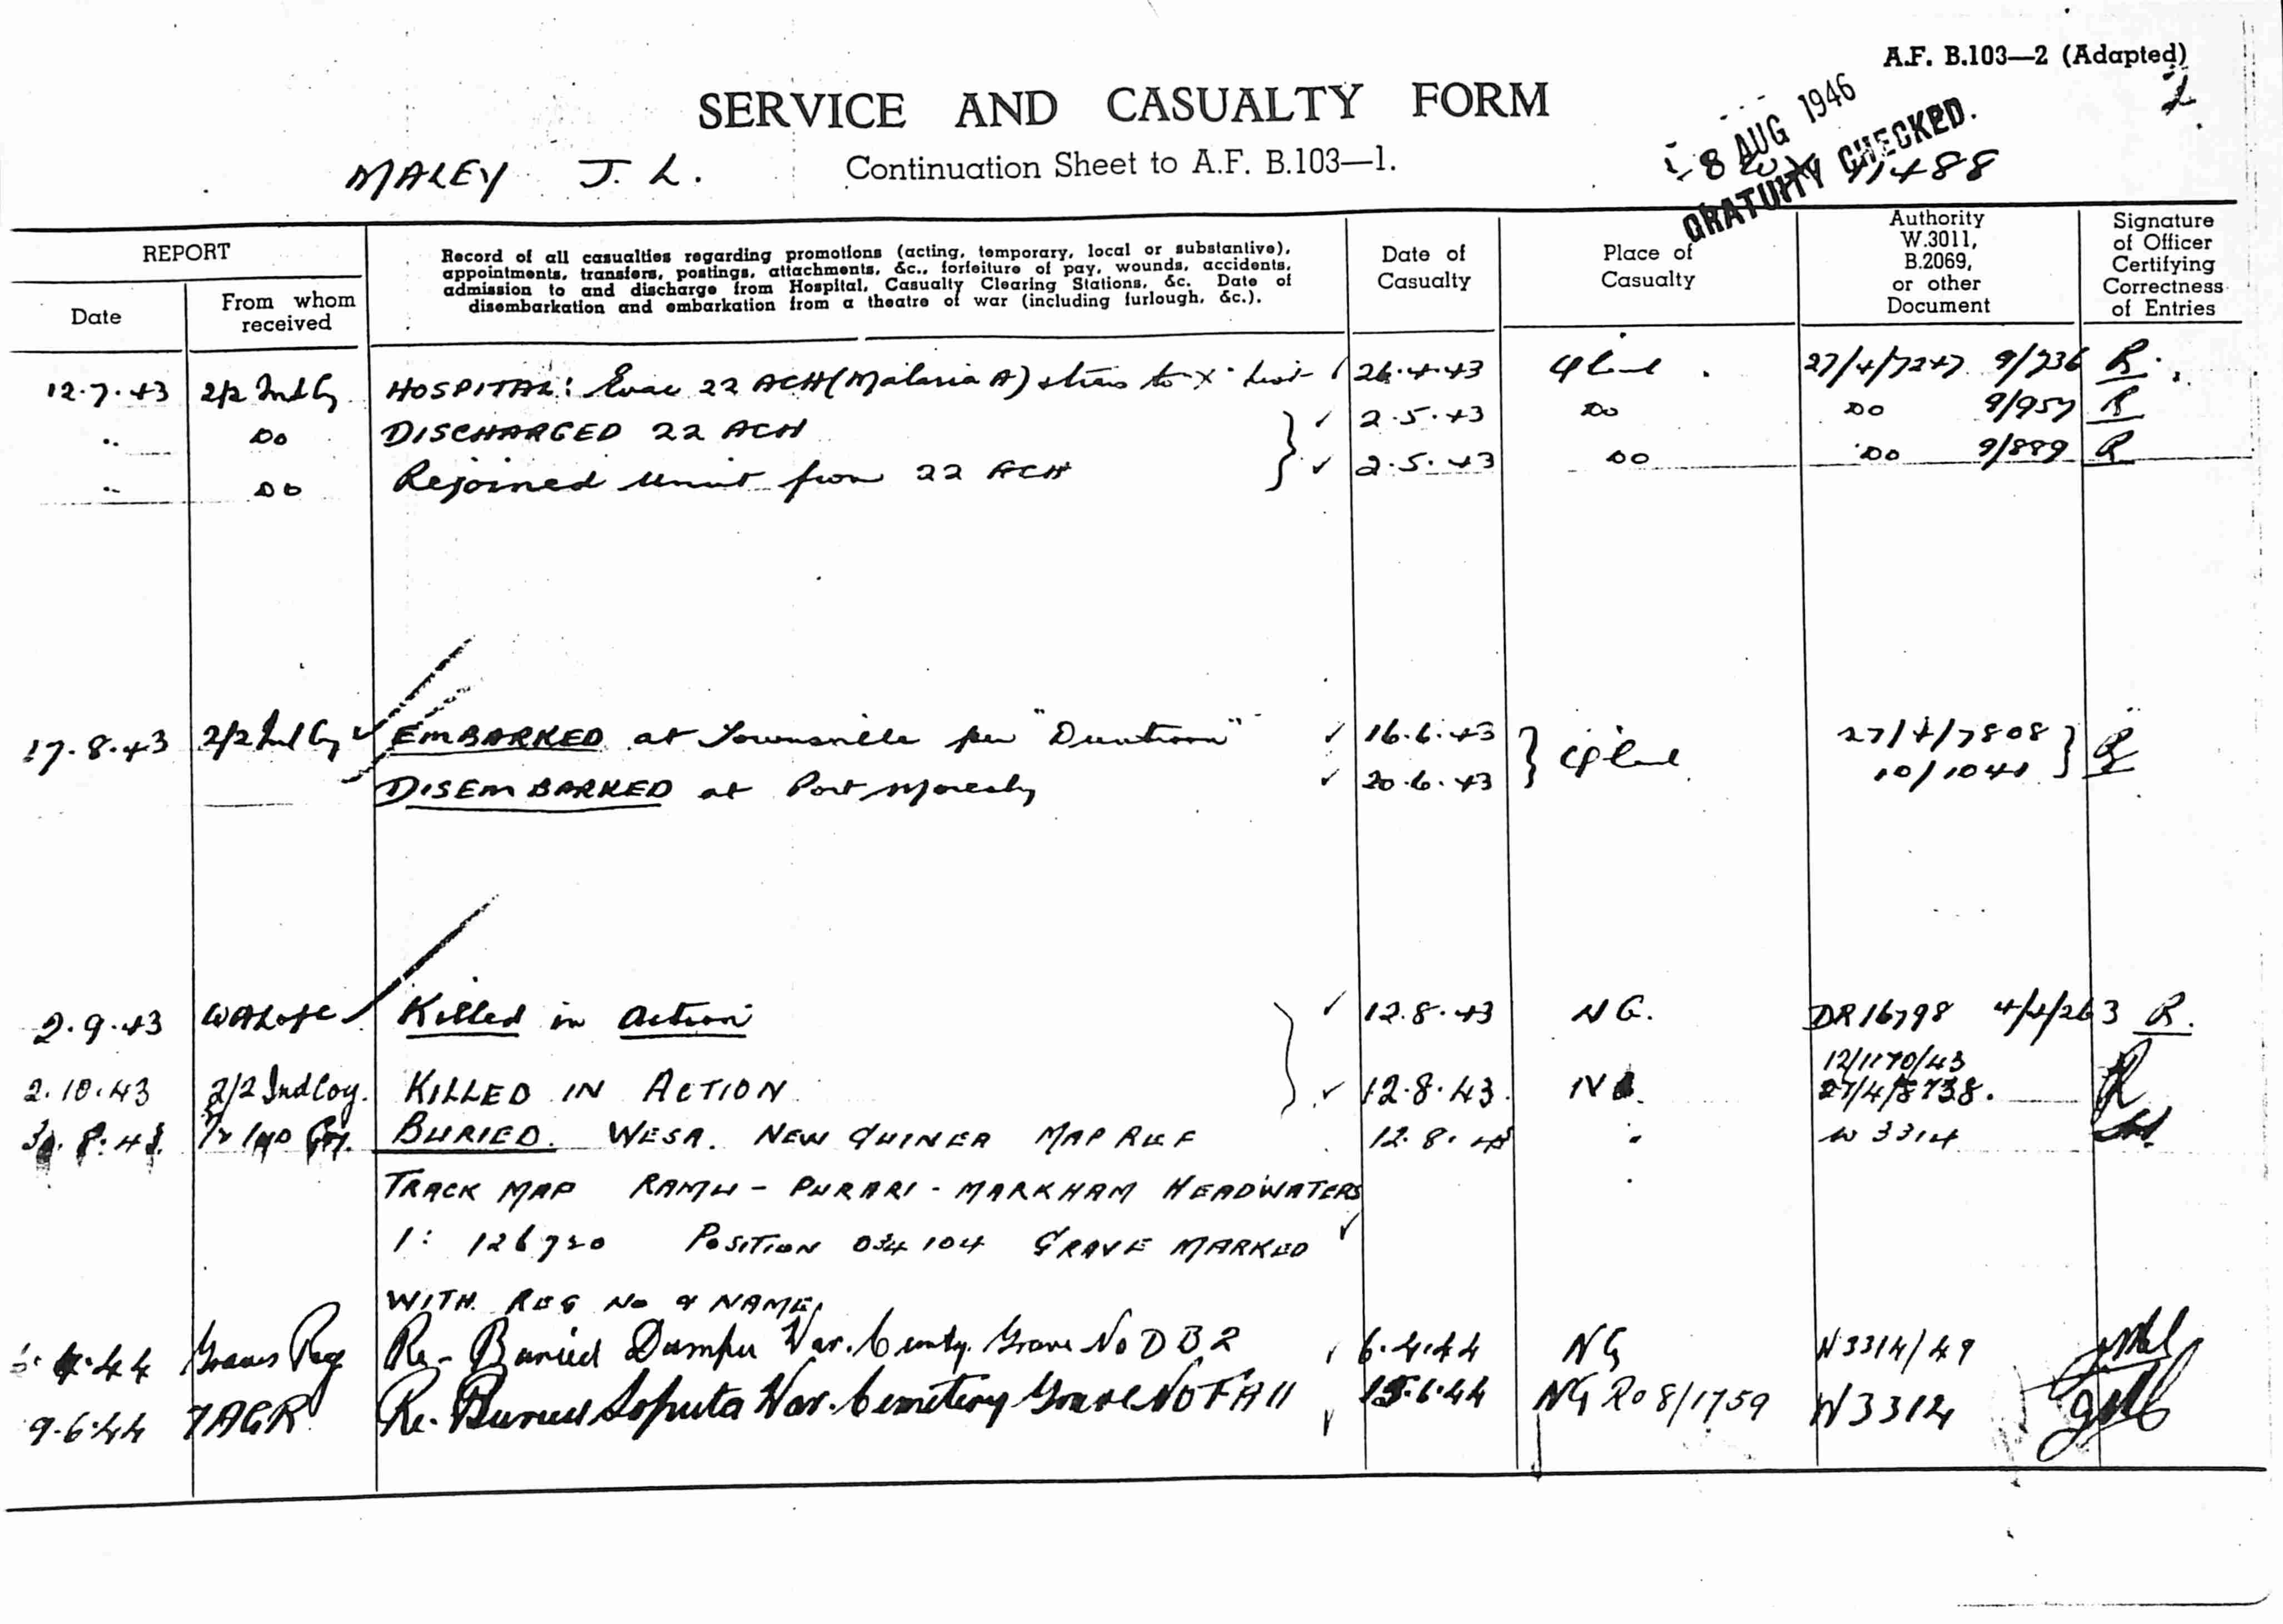 A.F. B.103—2 (Adapted)
2.
SERVICE AND CASUALTY FORM
MALEY J. L.
Continuation Sheet to A.F. B.103—1.
8 AUG 1946
GRATUITY CHECKED.
11488
REPORT
Date
From whom received
Record of all casualties regarding promotions (acting, temporary, local or substantive),
appointments, transfers, postings, attachments, &c., forfeiture of pay, wounds, accidents,
admission to and discharge from Hospital, Casualty Clearing Stations, &c. Date of
disembarkation and embarkation from a theatre of war (including furlough, &c.).
Date of Casualty
Place of Casualty
Authority W.3011, B.2069, or other Document
Signature of Officer Certifying Correctness of Entries
12.7.43 2/2 Ind Cy HOSPITAL: Evac 22 ACH (Malaria A) & trans to X list 26.4.43 Qland. 27/4/7247 9/736 R.
" DO DISCHARGED 22 ACH 2.5.43 DO DO 9/957 R
" DO Rejoined unit from 22 ACH 2.5.43 DO DO 9/889 R
17.8.43 2/2 Ind Cy EMBARKED at Townsville per "Duntroon" 16.6.43 Qland 27/4/7808 R
DISEMBARKED at Port Moresby 20.6.43 10/1041
2.9.43 WA L of C Killed in Action 12.8.43 NG. DR 16798 4/4/263 R.
12/1170/43
2.10.43 2/2 Ind Coy. KILLED IN ACTION 12.8.43. NG. 27/4/8738. R
8.43. BURIED. WESA. NEW GUINEA MAP REF 12.8.43 " W 3314
TRACK MAP RAMU - PURARI - MARKHAM HEADWATERS "
1: 126720 POSITION 034104 GRAVE MARKED
WITH REG No & NAME.
4.44 Graves Reg Re-Buried Dumpu War. Cemty. Grave No D B 2 6.4.44 NG W3314/49
9.6.44 7AGR Re-Buried Soputa War. Cemetery Grave No F A 11 15.6.44 NG R0 8/1759 W3314